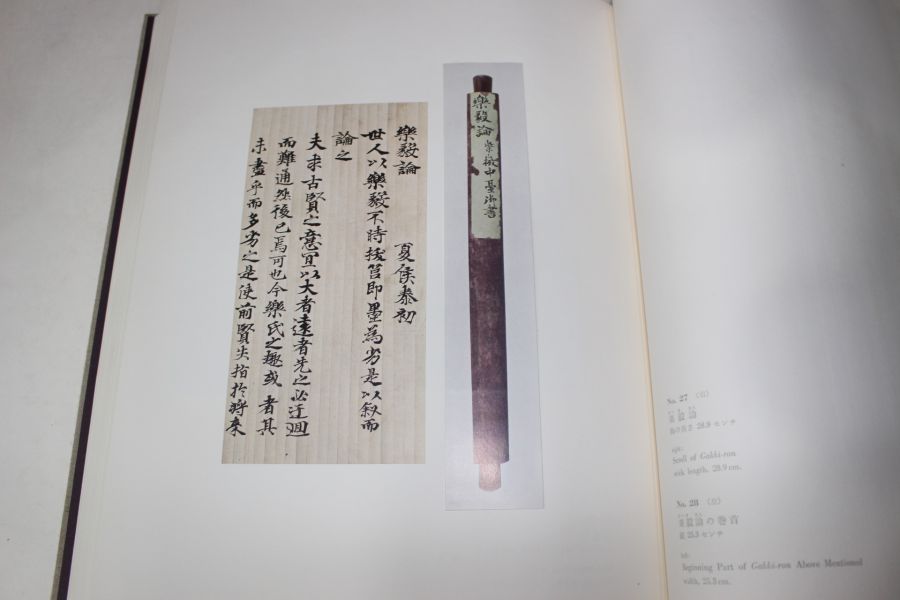 樂毅論 紫微中臺御書
樂毅論 夏侯泰初
世人以樂毅不時拔莒即墨為劣是以叙而
論之
夫求古賢之意宜以大者遠者先之必迂迴
而難通然後已焉可也今樂氏之趣或者其
未盡乎而多劣之是使前賢失指於將來
No. 27 (右)
28.9 センチ
right:
Scroll of Gakki-ron
stick length, 28.9 cm.
No. 28 (左)
樂毅論の巻首
縦 25.3 センチ
left:
Beginning Part of Gakki-ron Above Mentioned
width, 25.3 cm.